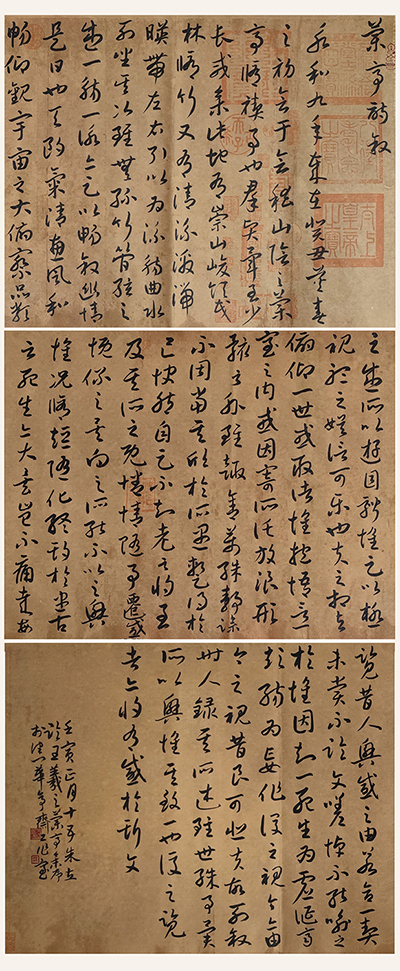 蘭亭詩敘
永和九年歲在癸丑暮春
之初會于會稽山陰之蘭
亭脩禊事也群賢畢至少
長咸集此地有崇山峻領茂
林脩竹又有清流激湍
暎帶左右引以為流觴曲水
列坐其次雖無絲竹管弦之
盛一觴一詠亦足以暢敘幽情
是日也天朗氣清惠風和
暢仰觀宇宙之大俯察品類
之盛所以遊目騁懷足以極
視聽之娛信可樂也夫人之相與
俯仰一世或取諸懷抱悟言一
室之內或因寄所託放浪形
骸之外雖趣舍萬殊靜躁
不同當其欣於所遇蹔得於
己怏然自足不知老之將至
及其所之既惓情隨事遷感
慨係之矣向之所能不以之興
懷況脩短隨化終期於盡古
云死生亦大矣豈不痛哉每
覽昔人興感之由若合一契
未嘗不臨文嗟悼不能喻之
於懷固知一死生為虛誕齊
彭殤為妄作後之視今亦由
今之視昔良可悲夫故列敘
時人錄其所述雖世殊事異
所以興懷其致一也後之覽
者亦將有感於斯文
壬寅正月十五朱立
臨王羲之蘭亭集序
齋工作室